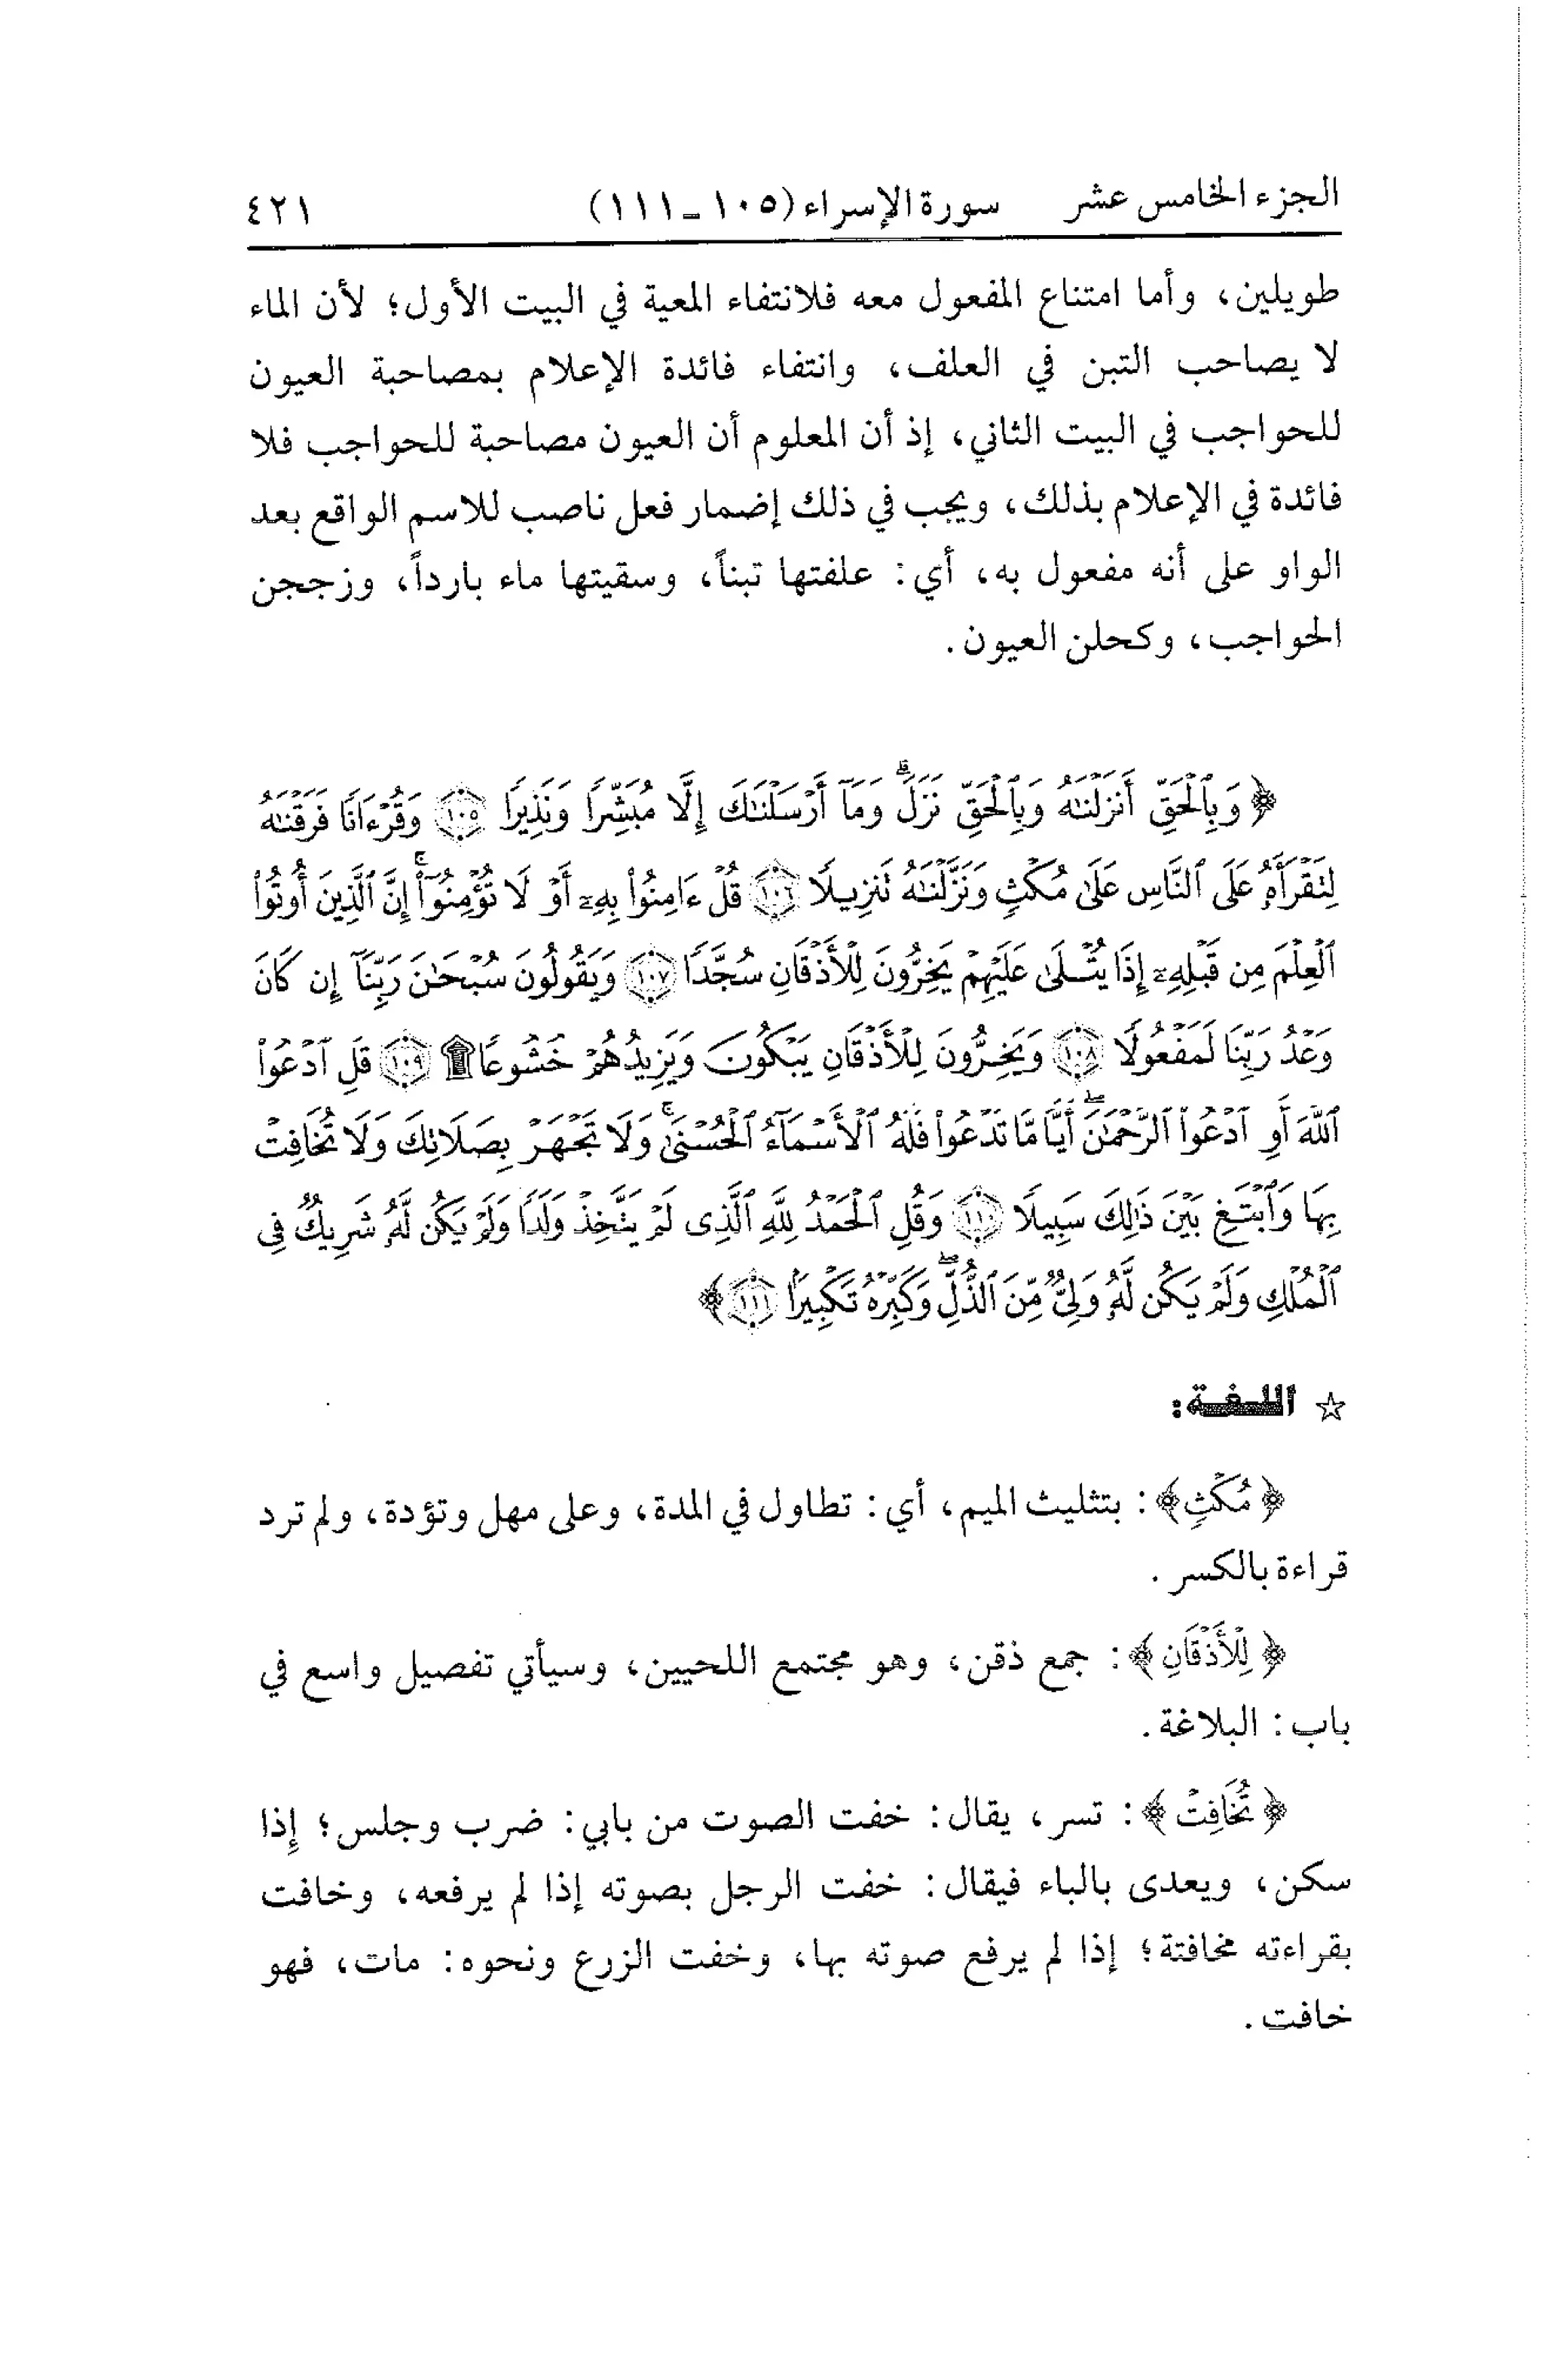 الجزء الخامس عشر سورة الإسراء (١٠٥ـ١١١) ٤٢١
طويلين، وأما امتناع المفعول معه فلانتفاء المعية في البيت الأول؛ لأن الماء
لا يصاحب التبن في العلف، وانتفاء فائدة الإعلام بمصاحبة العيون
للحواجب في البيت الثاني، إذ أن المعلوم أن العيون مصاحبة للحواجب فلا
فائدة في الإعلام بذلك، ويجب في ذلك إضمار فعل ناصب للاسم الواقع بعد
الواو على أنه مفعول به، أي: علفتها تبناً، وسقيتها ماء بارداً، وزججن
الحواجب، وكحلن العيون.
﴿وَبِٱلْحَقِّ أَنزَلْنَٰهُ وَبِٱلْحَقِّ نَزَلَ ۗ وَمَآ أَرْسَلْنَٰكَ إِلَّا مُبَشِّرًا وَنَذِيرًا ١٠٥ وَقُرْءَانًا فَرَقْنَٰهُ
لِتَقْرَأَهُۥ عَلَى ٱلنَّاسِ عَلَىٰ مُكْثٍ وَنَزَّلْنَٰهُ تَنزِيلًا ١٠٦ قُلْ ءَامِنُوا۟ بِهِۦٓ أَوْ لَا تُؤْمِنُوٓا۟ ۚ إِنَّ ٱلَّذِينَ أُوتُوا۟
ٱلْعِلْمَ مِن قَبْلِهِۦٓ إِذَا يُتْلَىٰ عَلَيْهِمْ يَخِرُّونَ لِلْأَذْقَانِ سُجَّدًا ١٠٧ وَيَقُولُونَ سُبْحَٰنَ رَبِّنَآ إِن كَانَ
وَعْدُ رَبِّنَا لَمَفْعُولًا ١٠٨ وَيَخِرُّونَ لِلْأَذْقَانِ يَبْكُونَ وَيَزِيدُهُمْ خُشُوعًا ۩ ١٠٩ قُلِ ٱدْعُوا۟
ٱللَّهَ أَوِ ٱدْعُوا۟ ٱلرَّحْمَٰنَ ۖ أَيًّا مَّا تَدْعُوا۟ فَلَهُ ٱلْأَسْمَآءُ ٱلْحُسْنَىٰ ۚ وَلَا تَجْهَرْ بِصَلَاتِكَ وَلَا تُخَافِتْ
بِهَا وَٱبْتَغِ بَيْنَ ذَٰلِكَ سَبِيلًا ١١٠ وَقُلِ ٱلْحَمْدُ لِلَّهِ ٱلَّذِى لَمْ يَتَّخِذْ وَلَدًا وَلَمْ يَكُن لَّهُۥ شَرِيكٌ فِى
ٱلْمُلْكِ وَلَمْ يَكُن لَّهُۥ وَلِىٌّ مِّنَ ٱلذُّلِّ ۖ وَكَبِّرْهُ تَكْبِيرًۢا ١١١﴾
☆ اللغة:
﴿مُكْثٍ﴾: بتثليث الميم، أي: تطاول في المدة، وعلى مهل وتؤدة، ولم ترد
قراءة بالكسر.
﴿لِلْأَذْقَانِ﴾: جمع ذقن، وهو مجتمع اللحيين، وسيأتي تفصيل واسع في
باب: البلاغة.
﴿تُخَافِتْ﴾: تسر، يقال: خفت الصوت من بابي: ضرب وجلس؛ إذا
سكن، ويعدى بالباء فيقال: خفت الرجل بصوته إذا لم يرفعه، وخافت
بقراءته مخافتة؛ إذا لم يرفع صوته بها، وخفت الزرع ونحوه: مات، فهو
خافت.